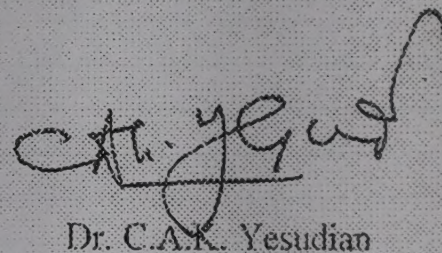 Dr. C.A.K. Yesudian